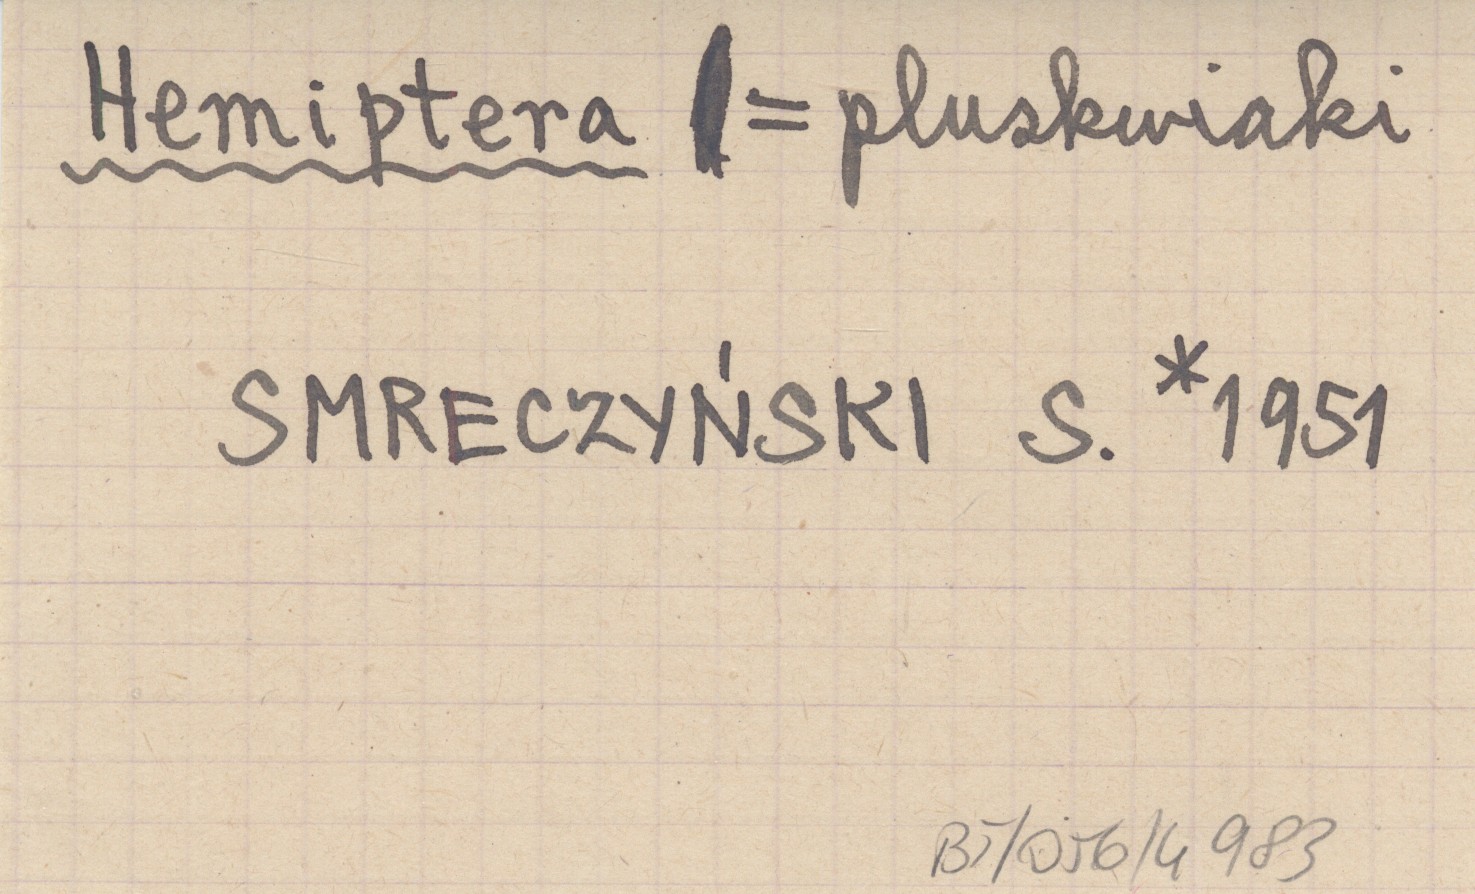 Hemiptera = pluskwiaki
SMRECZYŃSKI S. *1951
983